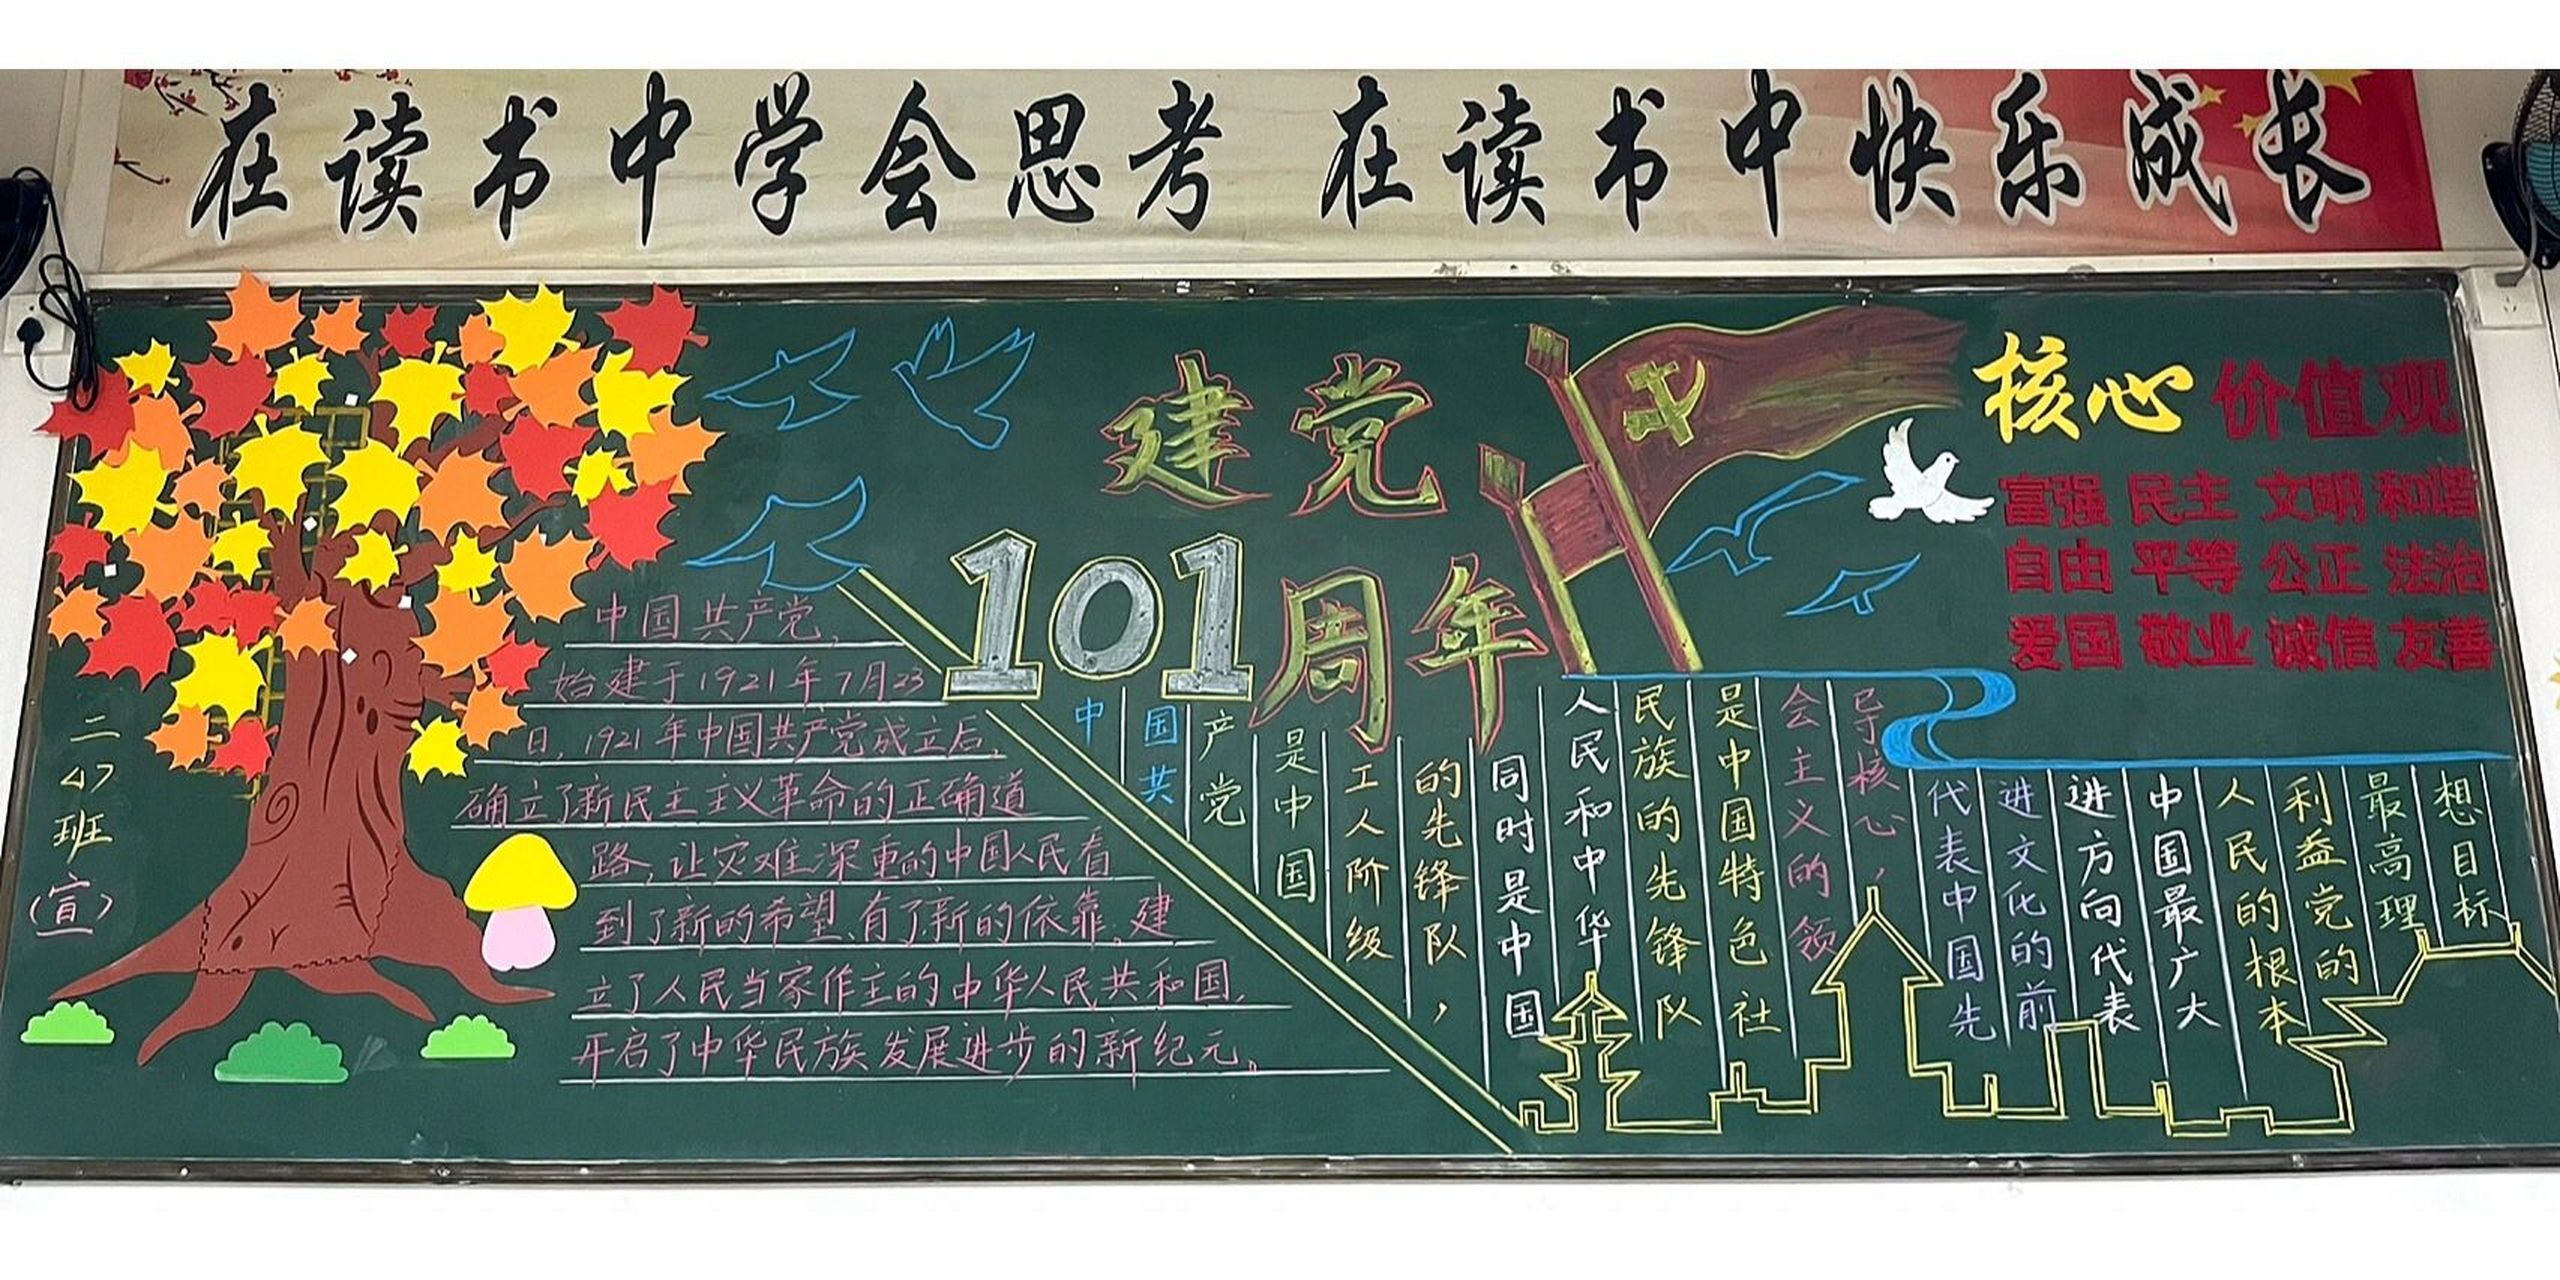 在读书中学会思考 在读书中快乐成长
建党
101周年
核心价值观
富强 民主 文明 和谐
自由 平等 公正 法治
爱国 敬业 诚信 友善
二47班
(宣)
中国共产党,
始建于1921年7月23
日,1921年中国共产党成立后,
确立了新民主主义革命的正确道
路,让灾难深重的中国人民看
到了新的希望、有了新的依靠。建
立了人民当家作主的中华人民共和国,
开启了中华民族发展进步的新纪元。
中
国共
产党
是中国
工人阶级
的先锋队,
同时是中国
人民和中华
民族的先锋队
是中国特色社
会主义的领
导核心,
代表中国先
进文化的前
进方向代表
中国最广大
人民的根本
利益党的
最高理
想目标